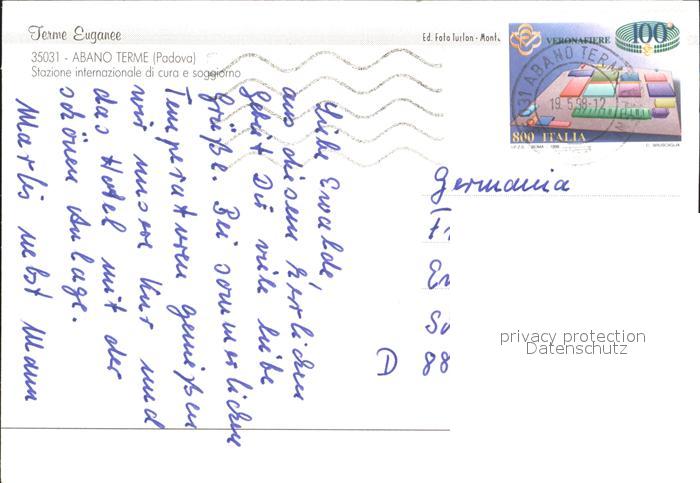 Terme Euganee
35031 - ABANO TERME (Padova)
Stazione internazionale di cura e soggiorno
Ed. Foto Turlon - Mont
VERONAFIERE
100
800 ITALIA
I.P.Z.S. ROMA 1998
35031 ABANO TERME
19.5.98-12
Liebe Ewalde,
aus diesem herrlichen
Gebiet Dir viele liebe
Grüße. Bei sommerlichen
Temperaturen genießen
wir unsere Kur und
das Hotel mit der
schönen Anlage.
Marlis nebst Mann
Germania
D 88
privacy protection
Datenschutz